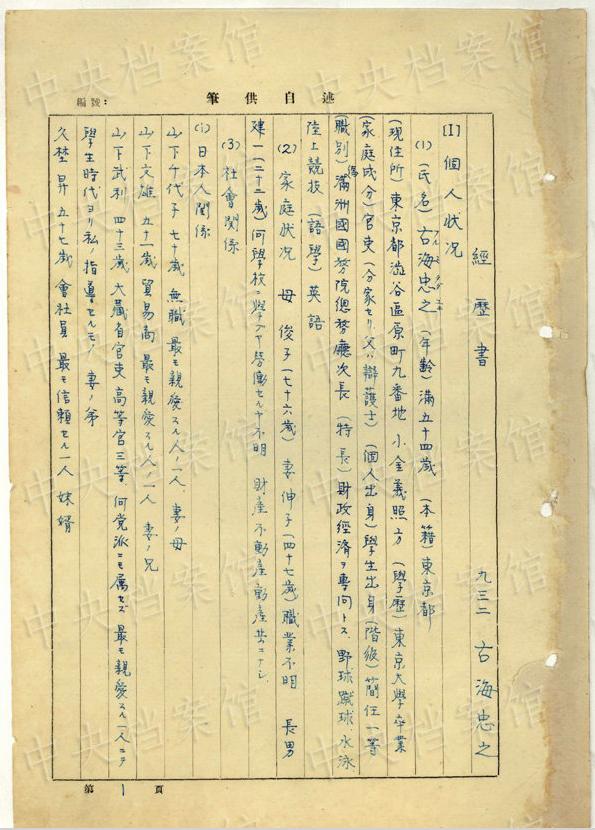 編號：
筆供自述
經歷書
九三二 古海忠之
[I] 個人状况
(1) (氏名) 古海忠之 (年齢) 滿五十四歳 (本籍) 東京都
フルミ タダユキ
(現住所) 東京都澁谷區原町九番地 小金義照方 (學歷) 東京大學卒業
(家庭成分) 官吏 (分家セリ、父ハ辯護士) (個人出身) 學生出身 (階級) 簡任一等
(職別) 偽滿洲國國務院總務廳次長 (特長) 財政經済ヲ專問トス 野球、蹴球、水泳
陸上競技 (語學) 英語
(2) 家庭状况 母 俊子 (七十六歳) 妻 伸子 (四十七歳) 職業不明 長男
建一 (二十三歳) 何學校ニ學ブヤ勞働セルヤ不明 財産 不動産動産共ニナシ
(3) 社會関係
(i) 日本人関係
山下千代子 七十歳 無職 最モ親愛スル人ノ一人、妻ノ母
山下文雄 五十一歳 貿易商 最モ親愛スル人ノ一人 妻ノ兄
山下武利 四十三歳 大藏省官吏 高等官三等 何党派ニモ属セズ 最モ親愛スル一人ニテ
學生時代ヨリ私ノ指導セルモノ 妻ノ弟
久埜昇 五十七歳 會社員 最モ信頼セル一人 妹婿
第 1 頁
中央档案馆